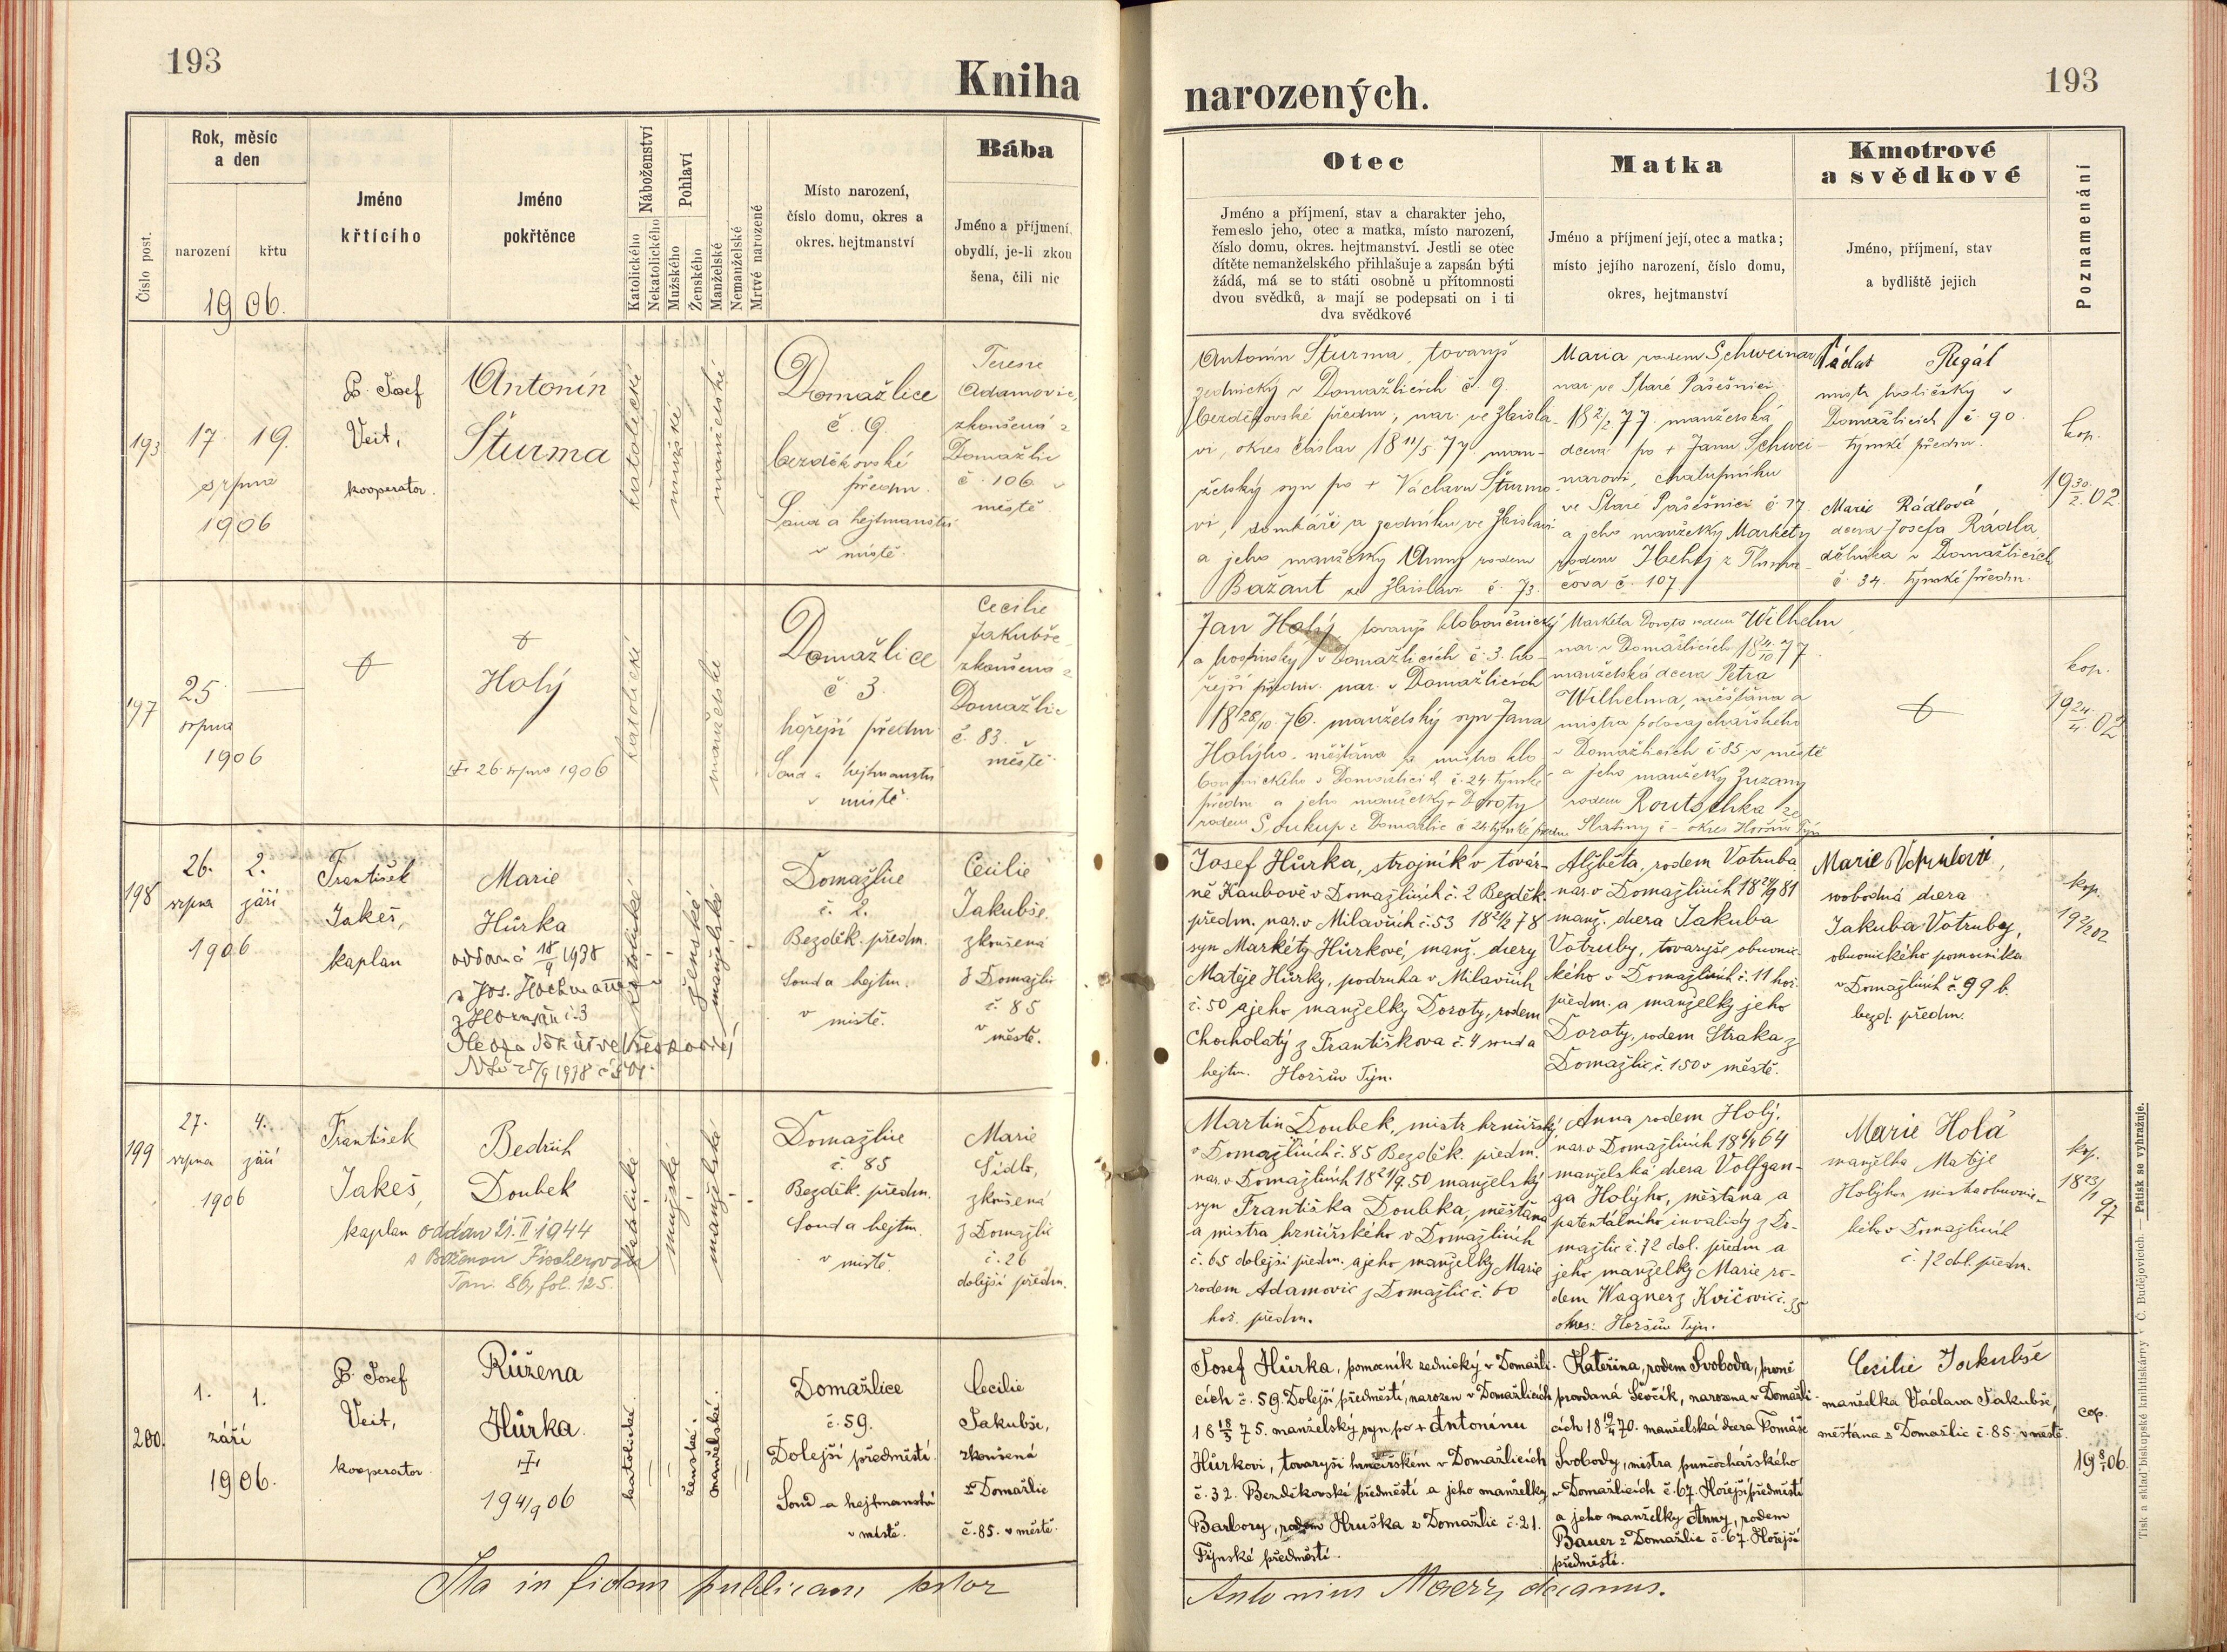 193
Kniha
narozených.
193
Číslo post.
Rok, měsíc
a den
narození
křtu
1906.
Jméno
křtícího
Jméno
pokřtěnce
Náboženství
Katolického
Nekatolického
Pohlaví
Mužského
Ženského
Manželské
Nemanželské
Mrtvě narozené
Místo narození,
číslo domu, okres a
okres. hejtmanství
Bába
Jméno a příjmení,
obydlí, je-li zkou
šena, čili nic
Otec
Jméno a příjmení, stav a charakter jeho,
řemeslo jeho, otec a matka, místo narození,
číslo domu, okres. hejtmanství. Jestli se otec
dítěte nemanželského přihlašuje a zapsán býti
žádá, má se to státi osobně u přítomnosti
dvou svědků, a mají se podepsati on i ti
dva svědkové
Matka
Jméno a příjmení její, otec a matka;
místo jejího narození, číslo domu,
okres, hejtmanství
Kmotrové
a svědkové
Jméno, příjmení, stav
a bydliště jejich
Poznamenání
193
17. 19.
srpna
1906
P. Josef
Veit,
kooperator.
Antonín
Šturma
katolické
mužské
manželské
Domažlice
č. 9.
bezděkovské
předm.
Soud a hejtmanství
v místě
Teresie
Adamovic,
zkoušená z
Domažlic
č. 106. v
městě
Antonín Šturma, tovaryš
zednický v Domažlicích č. 9.
bezděkovské předm., nar. ve Zbisla-
vi, okres Čáslav 18 11/5 77 man-
želský syn po + Václavu Šturmo-
vi, domkáři a zedníku ve Zbislavi
a jeho manželky Anny rodem
Bažant ze Zbislavi č. 73.
Maria rodem Schweinar
nar. ve Staré Pasečnici
18 2/2 77. manželská
dcera po + Janu Schwei-
narovi, chalupníku
ve Staré Pasečnici č. 17.
a jeho manželky Markéty
rodem
čova č. 107
Václav Regál
mistr holičský v
Domažlicích č. 90
týnské předm.
Marie Rádlová
dcera Josefa Rádla,
dělníka v Domažlicích
č. 34. Týnské předm.
kop.
19 30/2. 02.
197
25
srpna
1906
+
+
Holý
+ 26. srpna 1906
katolické
manželské
Domažlice
č. 3.
hořejší předm.
Soud a hejtmanství
v místě.
Cecilie
Jakubše,
zkoušená z
Domažlic
č. 83. v
městě
Jan Holý tovaryš kloboučnický
a hostinský v Domažlicích č. 3. ho-
řejší předm. nar. v Domažlicích
18 28/10. 76. manželský syn Jana
Holýho, měšťana a mistra klo-
boučnického v Domažlicích č. 24. týnské
předm. a jeho manželky + Doroty
rodem Soukup z Domažlic č. 24 týnské předm.
Markéta Dorota rodem Wilhelm,
nar. v Domažlicích 18 4/10 77.
manželská dcera Petra
Wilhelma, měšťana a
mistra
v Domažlicích č. 85 v městě
a jeho manželky Zuzany
rodem Routschka ze
Slatiny č – okres Horšův Týn
+
kop.
19 24/4. 02
198
26. 2.
srpna září
1906
František
Jakeš,
kaplan
Marie
Hůrka
oddaná 18/9 1938
s Jos. Hochmannem
z č. 3
NLU 25/9 1938
katolické
ženské
manželské
Domažlice
č. 2.
Bezděk. předm.
Soud a hejtm.
v místě.
Cecilie
Jakubše
zkoušená
z Domažlic
č. 85
v
městě.
Josef Hůrka, strojník v továr-
ně Haubově v Domažlicích č. 2 Bezděk.
předm. nar. v Milavčích č. 53 18 21/2 78
syn Markéty Hůrkové, manž. dcery
Matěje Hůrky, podruha v Milavčích
č. 50 a jeho manželky Doroty, rodem
Chocholatý z Františkova č. 4 soud a
hejtm. Horšův Týn.
Alžběta, rodem Votruba
nar. v Domažlicích 18 24/9 81
manž. dcera Jakuba
Votruby, tovaryše obuvnic-
kého v Domažlicích č. 11 hoř.
předm. a manželky jeho
Doroty, rodem Straka z
Domažlic č. 150 v městě.
Marie Votrubová,
svobodná dcera
Jakuba Votruby,
obuvnického pomocníka
v Domažlicích č. 99 b.
bezd. předm.
kop.
19 2/2 02
199
27. 4.
srpna září
1906
František
Jakeš,
kaplan
Bedřich
Doubek
oddán 21. II. 1944
s Boženou Fischerovou
Tom. 86, fol. 125.
katolické
mužské
manželské
Domažlice
č. 85
Bezděk. předm.
Soud a hejtm.
v místě.
Marie
Šidlo,
zkoušená
z Domažlic
č. 26
dolejší předm.
Martin Doubek, mistr hrnčířský
v Domažlicích č. 85 Bezděk. předm.
nar. v Domažlicích 18 21/9. 50 manželský
syn Františka Doubka, měšťana
a mistra hrnčířského v Domažlicích
č. 65 dolejší předm. a jeho manželky Marie
rodem Adamovic z Domažlic č. 60
hoř. předm.
Anna rodem Holý,
nar. v Domažlicích 18 6/4 64
manželská dcera Volfgan-
ga Holýho, měšťana a
patentálního invalidy z Do-
mažlic č. 72 dol. předm. a
jeho manželky Marie ro-
dem Wagner z Kvíčovic č. 35
okres: Horšův Týn.
Marie Holá
manželka Matěje
Holýho mistra obuvnic-
kého v Domažlicích
č. 72 dol. předm.
kop.
18 23/1 97
200.
1. 1.
září
1906.
P. Josef
Veit,
kooperator
Růžena
Hůrka.
+
19 4/9 06
katolické.
ženské.
manželské.
Domažlice
č. 59.
Dolejší předměstí.
Soud a hejtmanství
v místě.
Cecilie
Jakubše,
zkoušená
z Domažlic
č. 85. v městě.
Josef Hůrka, pomocník zednický v Domažli-
cích č. 59. Dolejší předměstí, narozen v Domažlicích
18 18/3 75. manželský syn po + Antonínu
Hůrkovi, tovaryši hrnčířském v Domažlicích
č. 32. Bezděkovské předměstí a jeho manželky
Barbory, rodem Hruška z Domažlic č. 21.
Týnské předměstí.
Kateřina, rodem Svoboda, prvně
provdaná Ševčík, narozena v Domažli-
cích 18 19/4 70. manželská dcera Tomáše
Svobody, mistra punčochářského
v Domažlicích č. 67. Hořejší předměstí
a jeho manželky Anny, rodem
Bauer z Domažlic č. 67. Hořejší
předměstí.
Cecilie Jakubše
manželka Václava Jakubše,
měšťana z Domažlic č. 85. v městě.
cop.
19 8/1 06.
Ita in fidem publicam testor
Antonius Maerz, decanus.
Tisk a sklad biskupské knihtiskárny v Č. Budějovicích. — Patisk se vyhražuje.